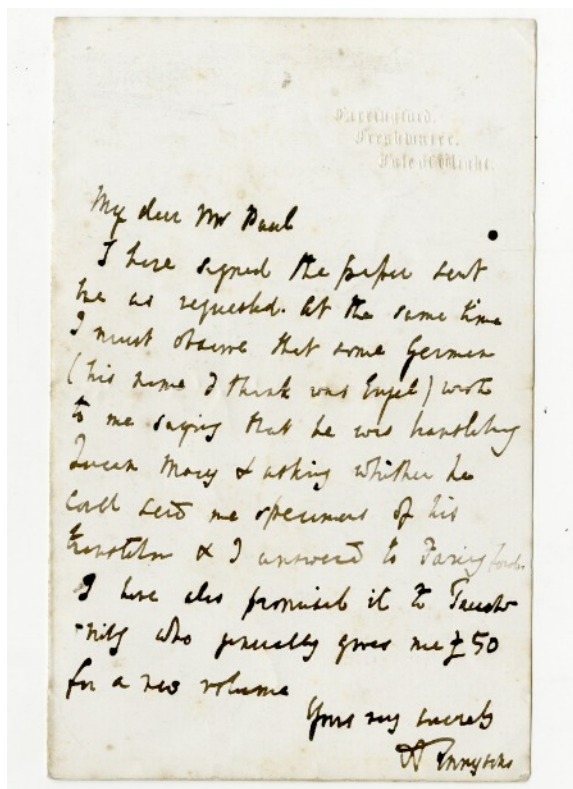 Farringford.
Freshwater.
Isle of Wight.
My dear Mr Paul
I have signed the paper sent
me as requested. At the same time
I must observe that some German
(his name I think was Engel) wrote
to me saying that he was translating
Queen Mary & asking whether he
could send me specimens of his
translation & I answered to Faringford.
I have also promised it to Tauch-
-nitz who generally gives me £50
for a new volume
Yours very sincerely
A Tennyson